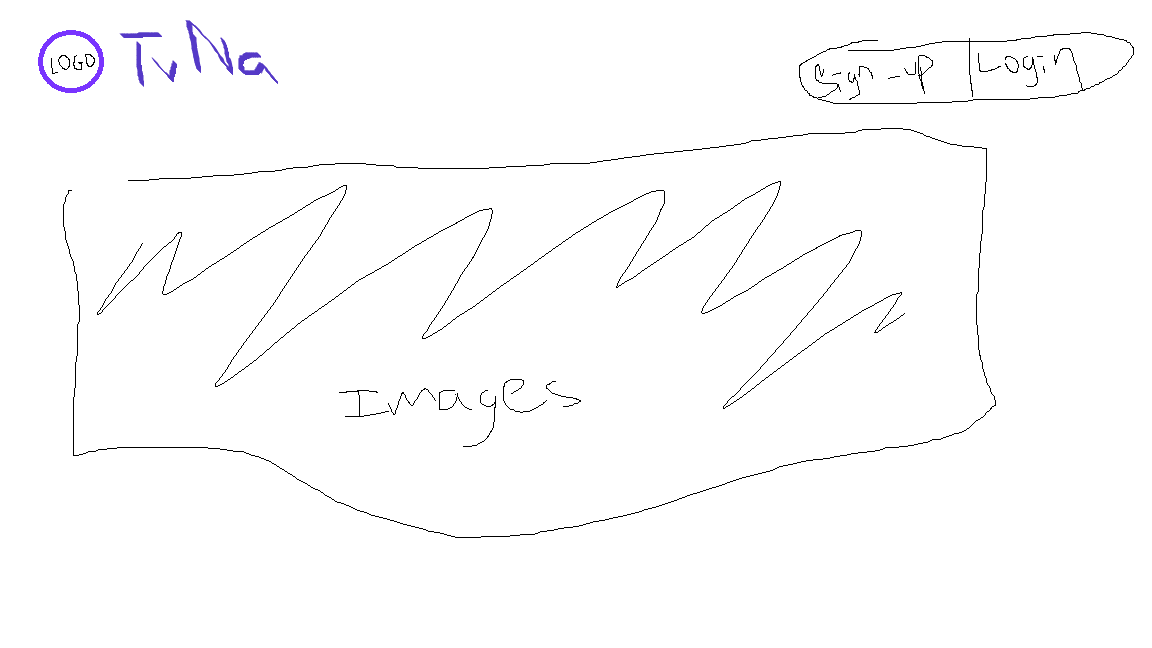 LOGO TvNa
Sign-up Login
Images